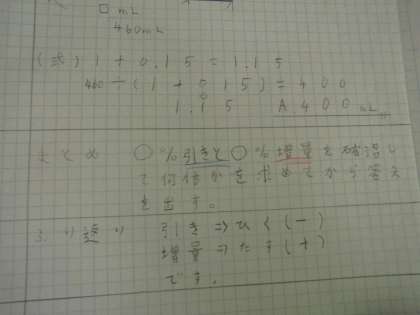 □ mL
460mL
(式) 1 + 0.15 = 1.15
460 ÷ (1 + 0.15) = 400
1.15 A 400 mL
まとめ ○%引きと○%増量を確認し
て何倍かを求めてから答え
を出す。
ふり返り 引き⇒ひく(−)
増量⇒たす(+)
です。